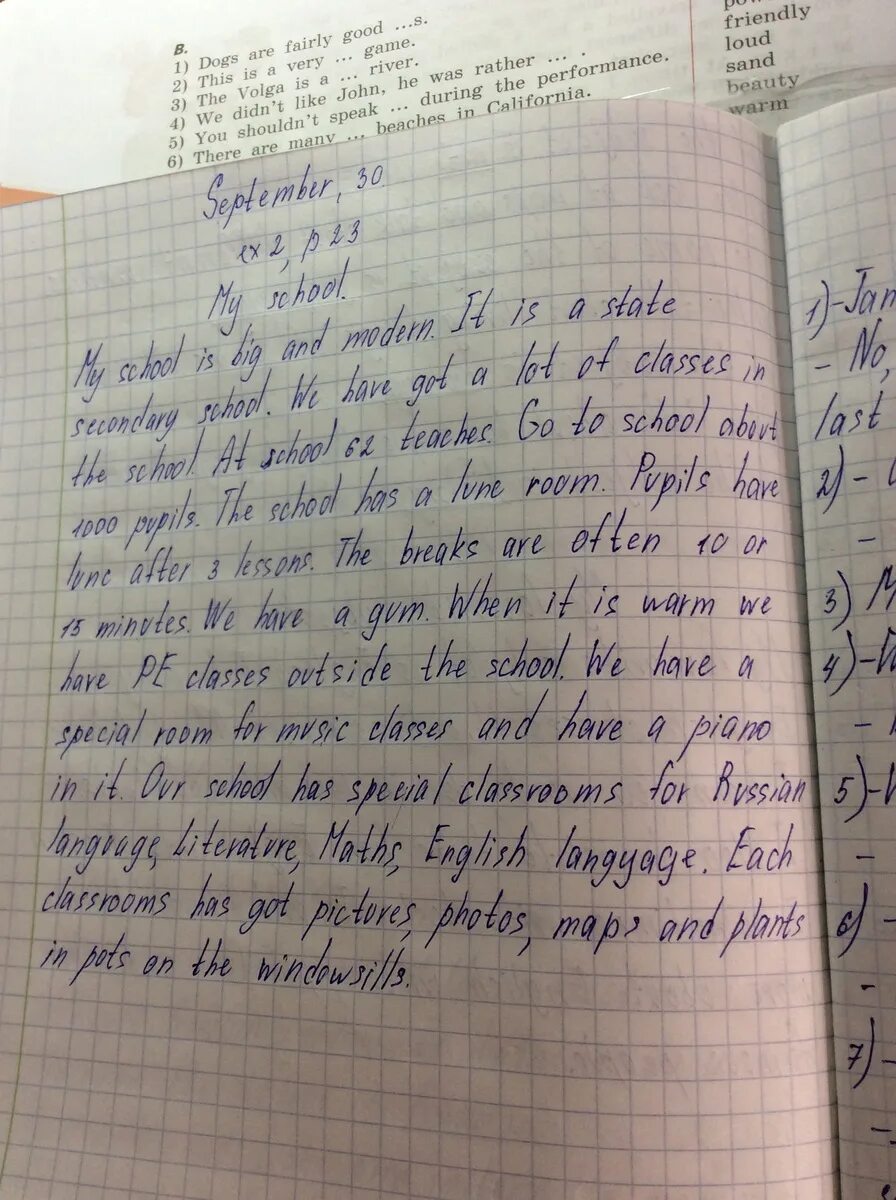 B.
1) Dogs are fairly good ...s.
2) This is a very ... game.
3) The Volga is a ... river.
4) We didn't like John, he was rather ... .
5) You shouldn't speak ... during the performance.
6) There are many ... beaches in California.
friendly
loud
sand
beauty
warm
September, 30
ex 2, p 23
My school.
My school is big and modern. It is a state
secondary school. We have got a lot of classes in
the school. At school 62 teaches. Go to school about
1000 pupils. The school has a lunc room. Pupils have
lunc after 3 lessons. The breaks are often 10 or
15 minutes. We have a gum. When it is warm we
have PE classes outside the school. We have a
special room for music classes and have a piano
in it. Our school has special classrooms for Russian
language, Literature, Maths, English langyage. Each
classrooms has got pictures, photos, maps and plants
in pots on the windowsills.
1) - Jan
- No,
last
2) -
-
3) M
4) -
-
5) -
-
6) -
-
7) -
-